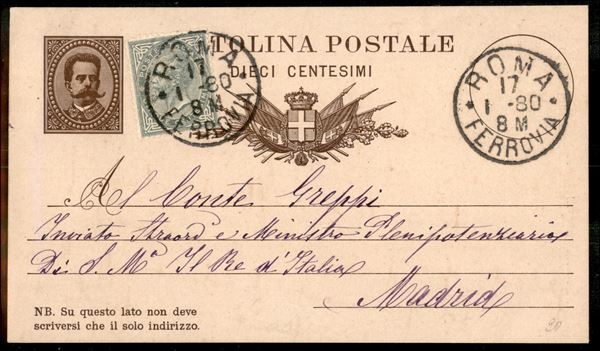 TOLINA POSTALE
DIECI CENTESIMI
ROMA
17
1 - 80
8 M
FERROVIA
ROMA
17
1 - 80
8 M
FERROVIA
Al Conte Greppi
Inviato Straord e Ministro Plenipotenziario
Di S. Mª Il Re d'Italia
Madrid
NB. Su questo lato non deve
scriversi che il solo indirizzo.